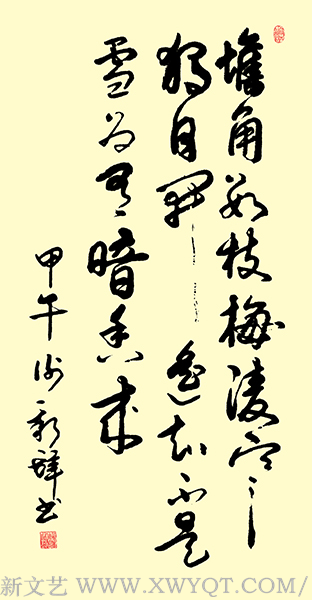 墙角数枝梅凌寒
独自开遥知不是
雪为有暗香来
甲午新辉书
新文艺 WWW.XWYQT.COM/